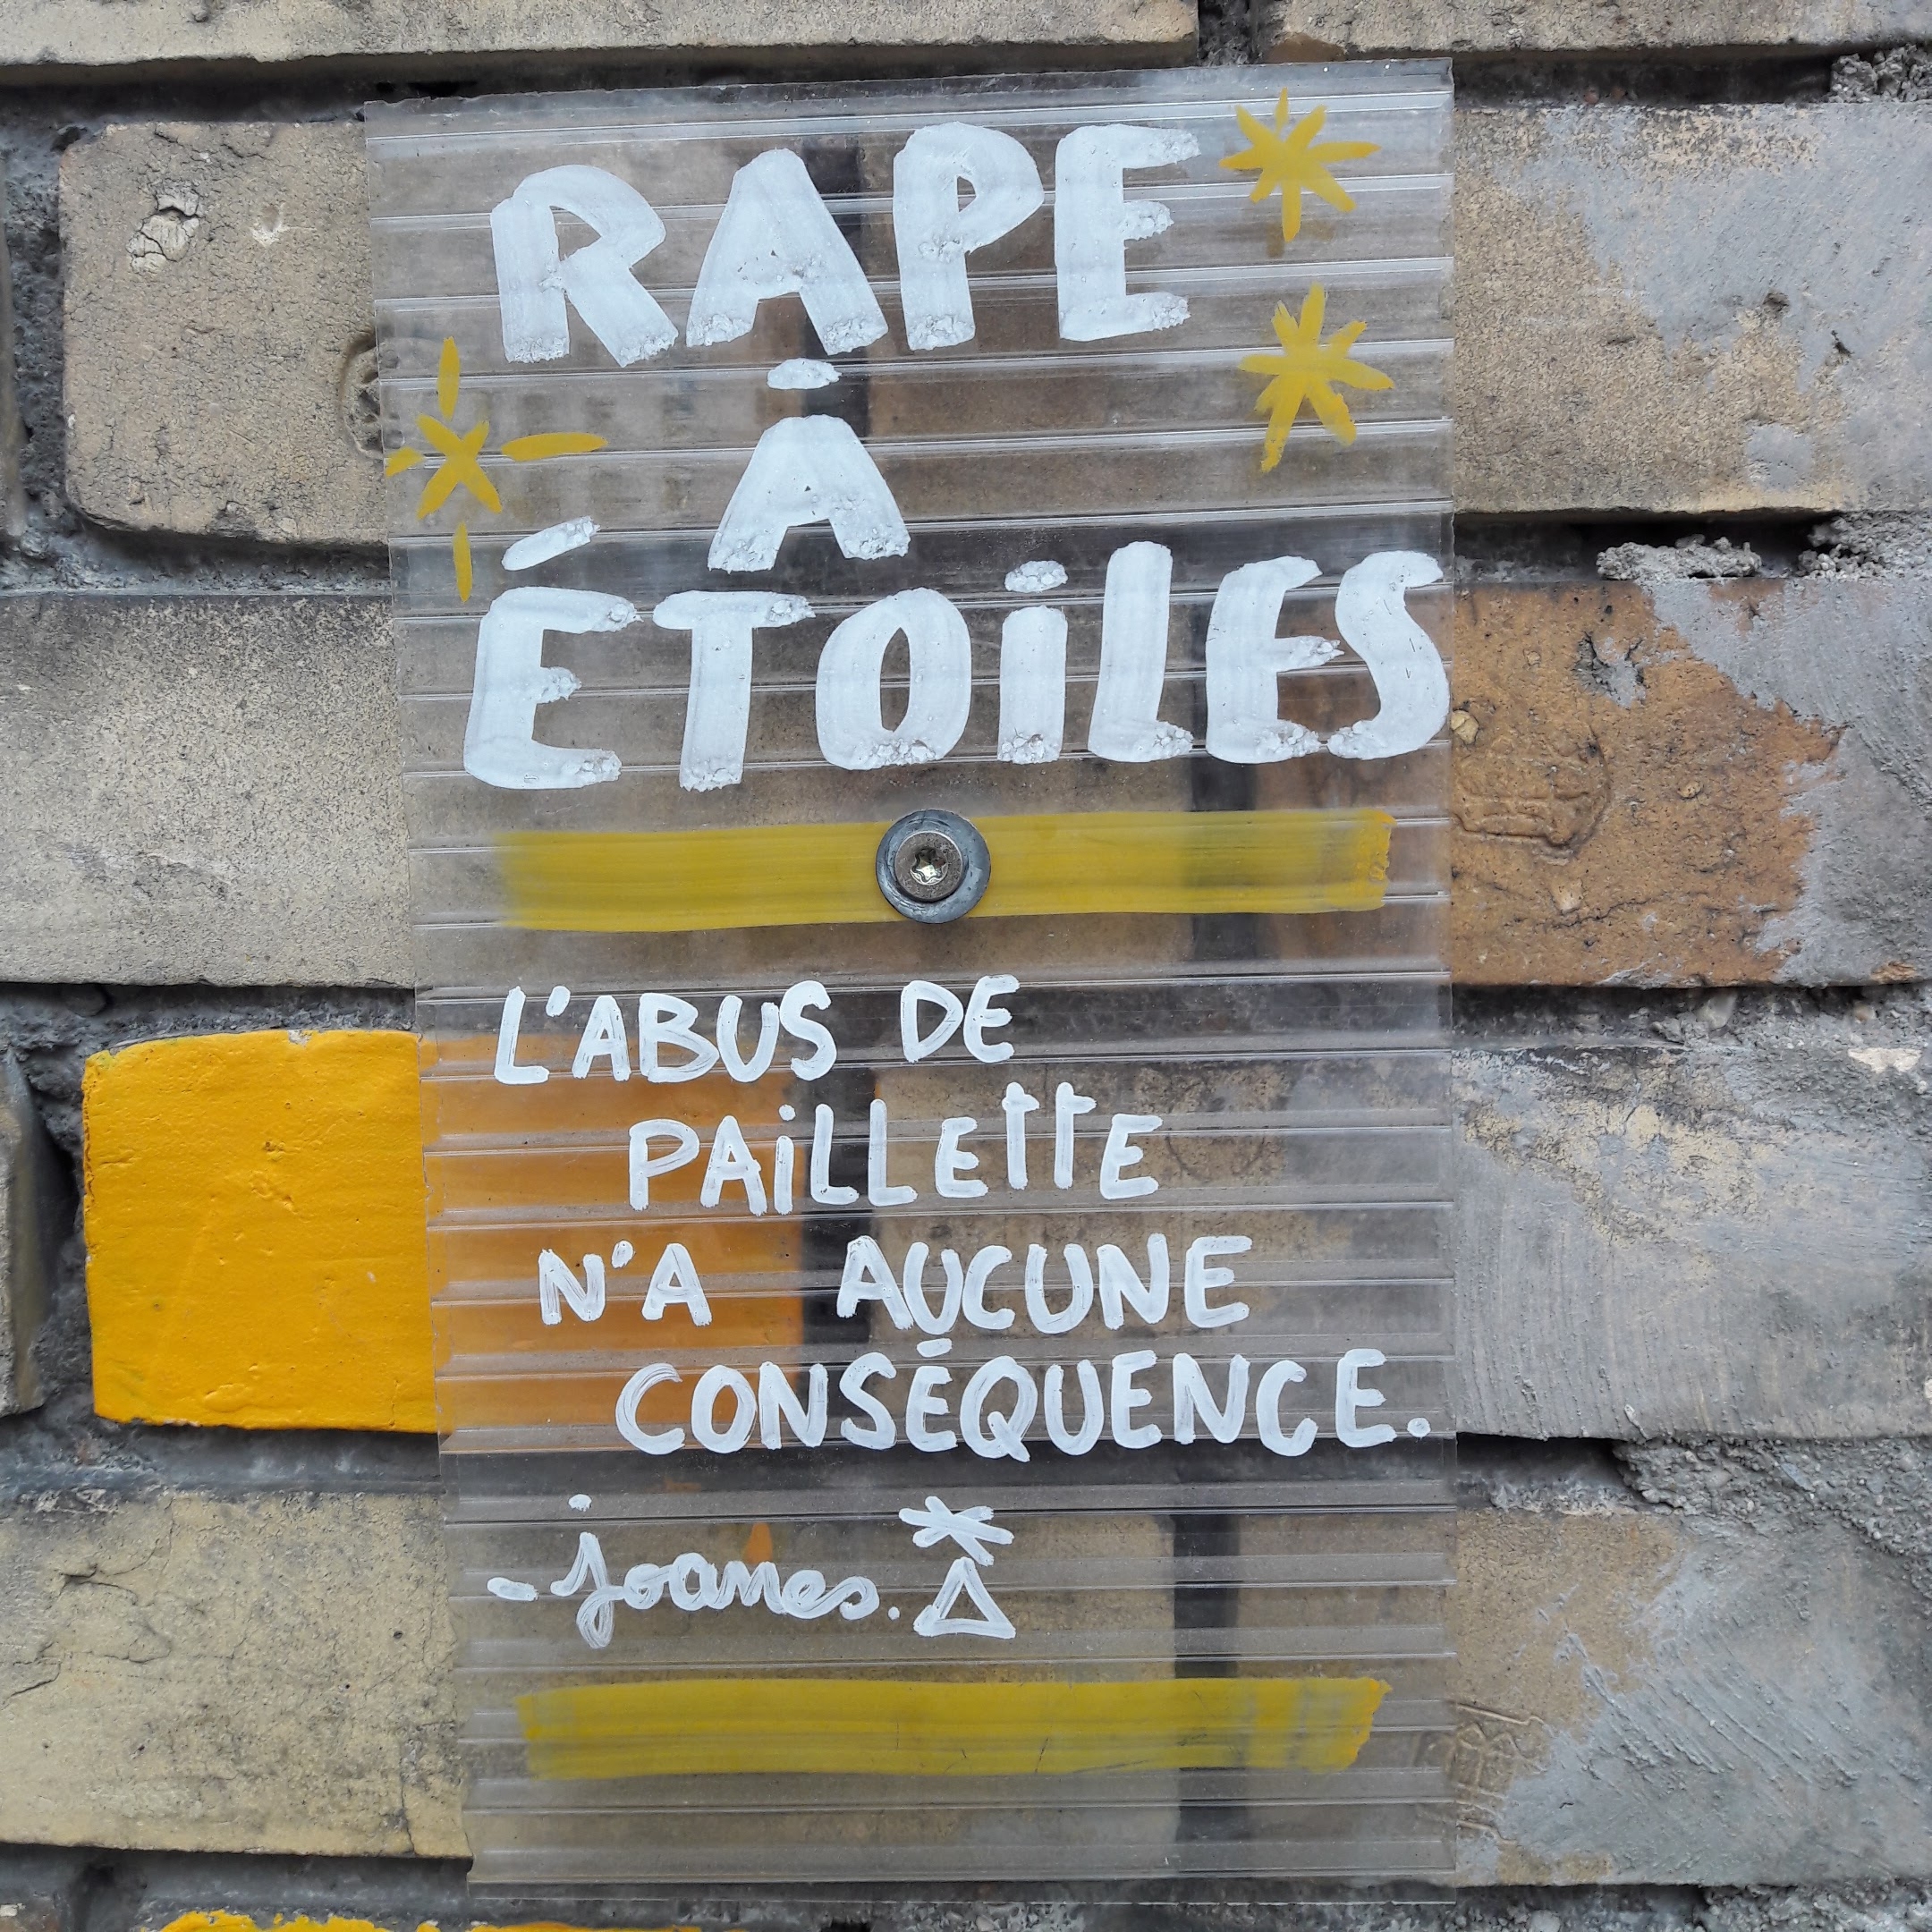 RAPE
À
ÉTOiLES
L'ABUS DE
PAiLLETTE
N'A AUCUNE
CONSÉQUENCE.
- joanes.